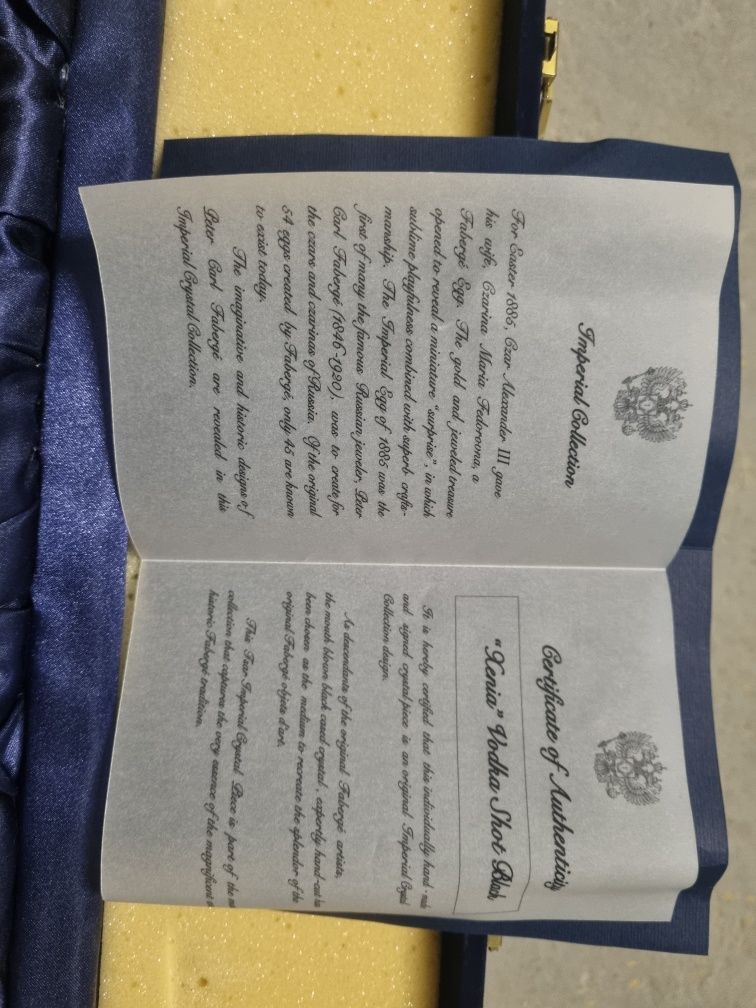 Imperial Collection
For Easter 1885, Czar Alexander III gave
his wife, Czarina Maria Fedorovna, a
Fabergé Egg. The gold and jeweled treasure
opened to reveal a miniature "surprise", in which
sublime playfulness combined with superb crafts-
manship. The Imperial Egg of 1885 was the
first of many the famous Russian jeweler, Peter
Carl Fabergé (1846-1920), was to create for
the czars and czarinas of Russia. Of the original
54 eggs created by Fabergé, only 45 are known
to exist today.
The imaginative and historic designs of
Peter Carl Fabergé are revealed in this
Imperial Crystal Collection.
Certificate of Authenticity
"Xenia" Vodka Shot Black
It is hereby certified that this individually hand-made
and signed crystal piece is an original Imperial Crystal
Collection design.
As descendants of the original Fabergé artists,
the mouth blown black cased crystal, expertly hand-cut has
been chosen as the medium to recreate the splendor of the
original Fabergé objets d'art.
This Tsar Imperial Crystal Piece is part of the
collection that captures the very essence of the magnificent
historic Fabergé tradition.